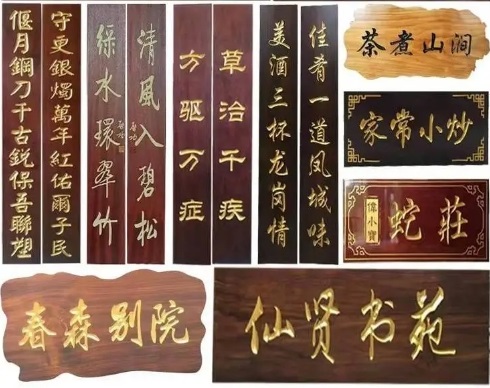 守更銀燭萬年紅佑爾子民
偃月鋼刀千古銳保吾聯塑
清風入碧松
綠水環翠竹
草治千疾
方驱万症
佳肴一道凤城味
美酒三杯龙岗情
茶煮山澗
家常小炒
偉小寶
蛇莊
春森别院
仙贤书苑